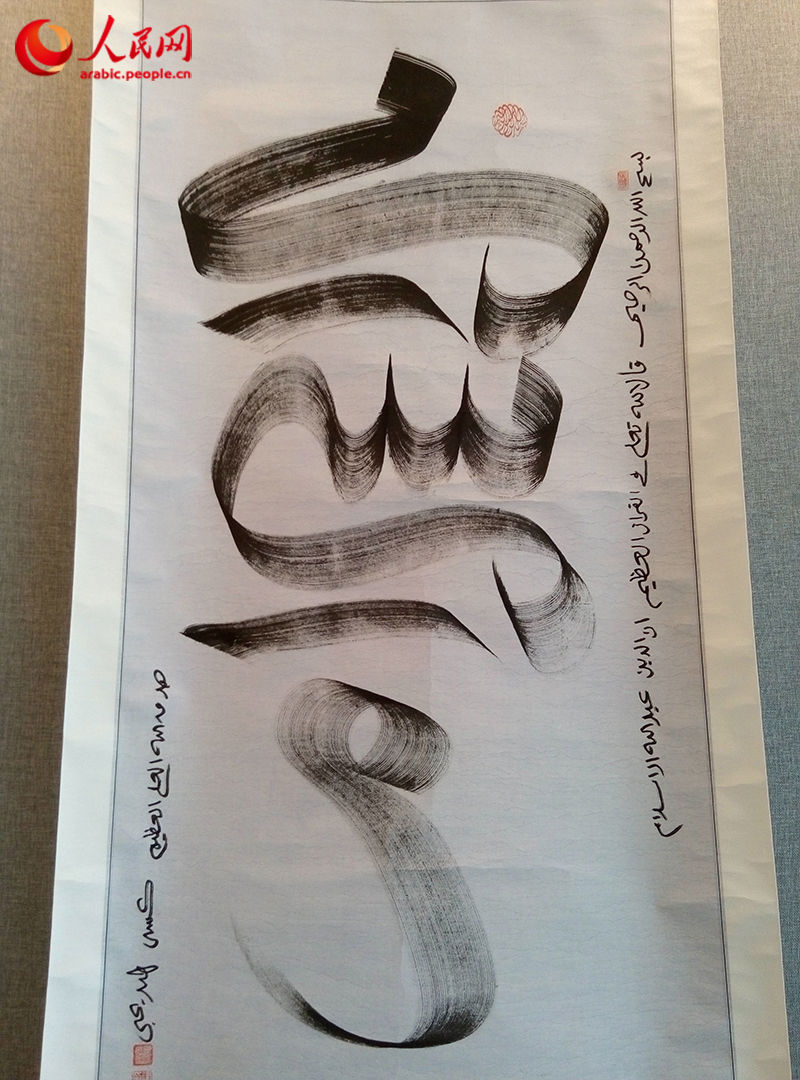 人民网
arabic.people.cn
بسم الله الرحمن الرحيم قال الله تعالى في القران العظيم ان الدين عند الله الاسلام
الاسلام
صدق الله العلي العظيم